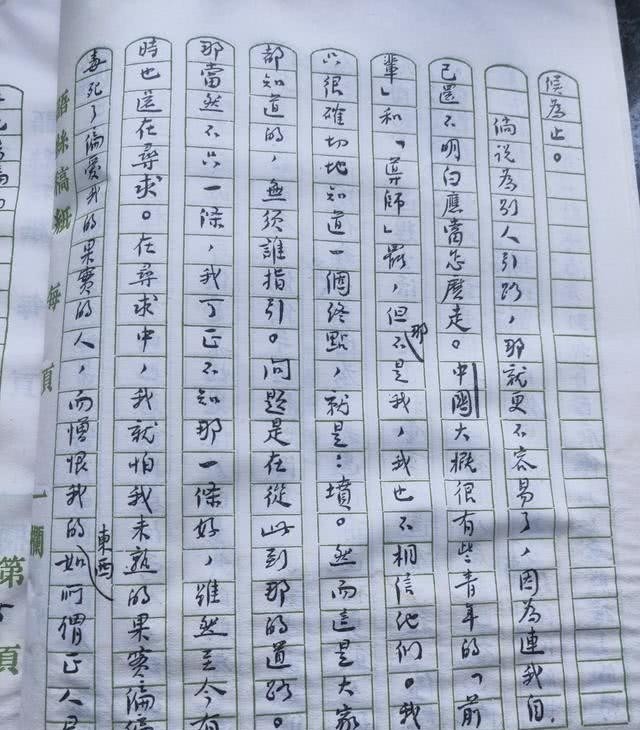 候為止。
倘說為别人引路，那就更不容易了，因為連我自
己還不明白應當怎麽走。中國大概很有些青年的「前
輩」和「導師」罷，但那不是我，我也不相信他們。我
只很確切地知道一個終點，就是：墳。然而這是大家
都知道的，無須誰指引。問題是在從此到那的道路。
那當然不只一條，我可正不知那一條好，雖然至今有
時也還在尋求。在尋求中，我就怕我未熟的果實偏偏
毒死了偏愛我的果實的人，而憎恨我的東西如所謂正人
語絲稿紙 每頁一欄
第 頁